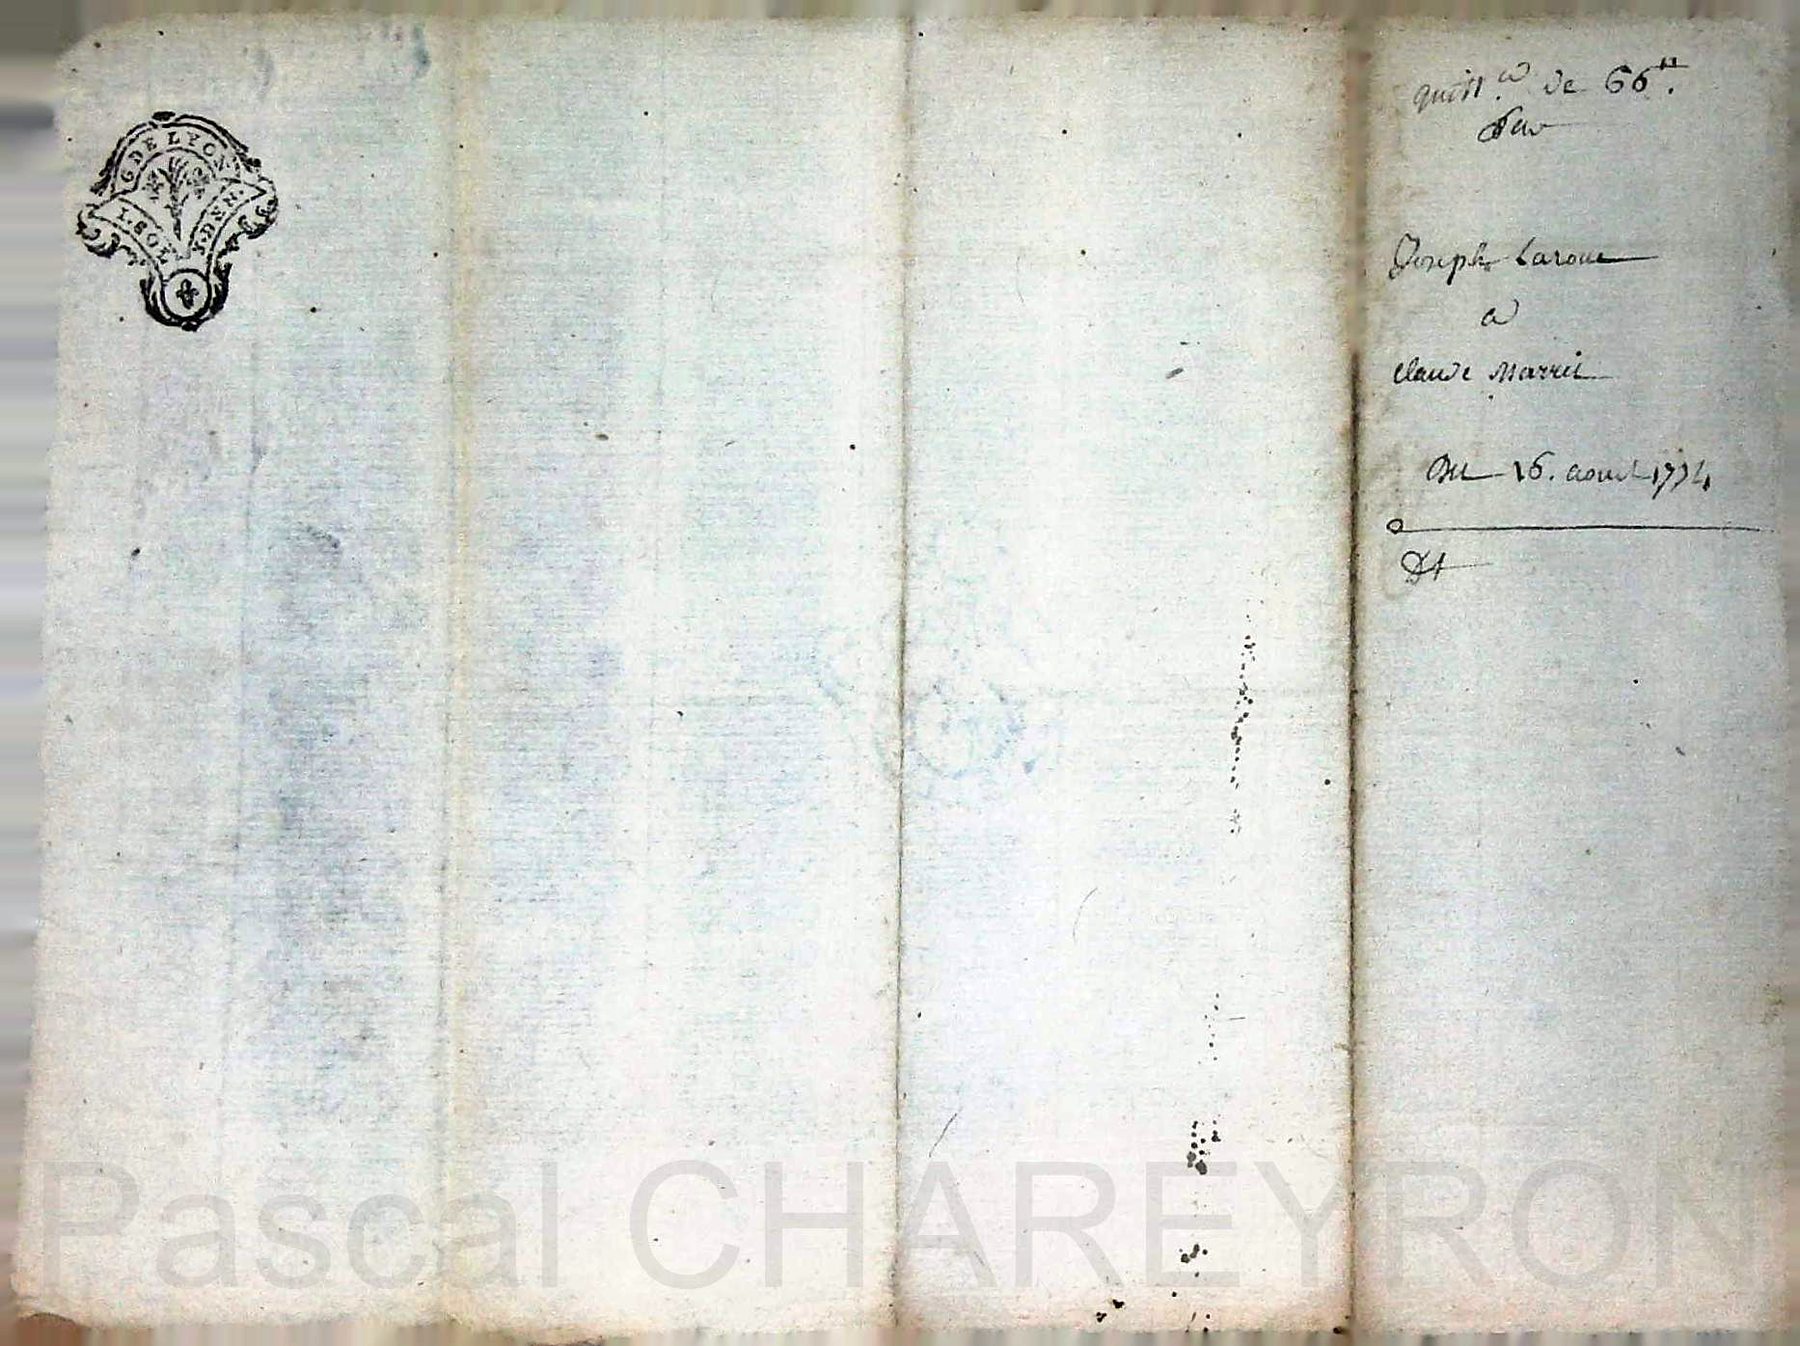 G. DE LYON
1. SOL 4. DEN.
quitt.ce de 66tt.
Par
Joseph Laroue
a
Claude Marrel
Du 16. aoust 1774
Pascal CHAREYRON